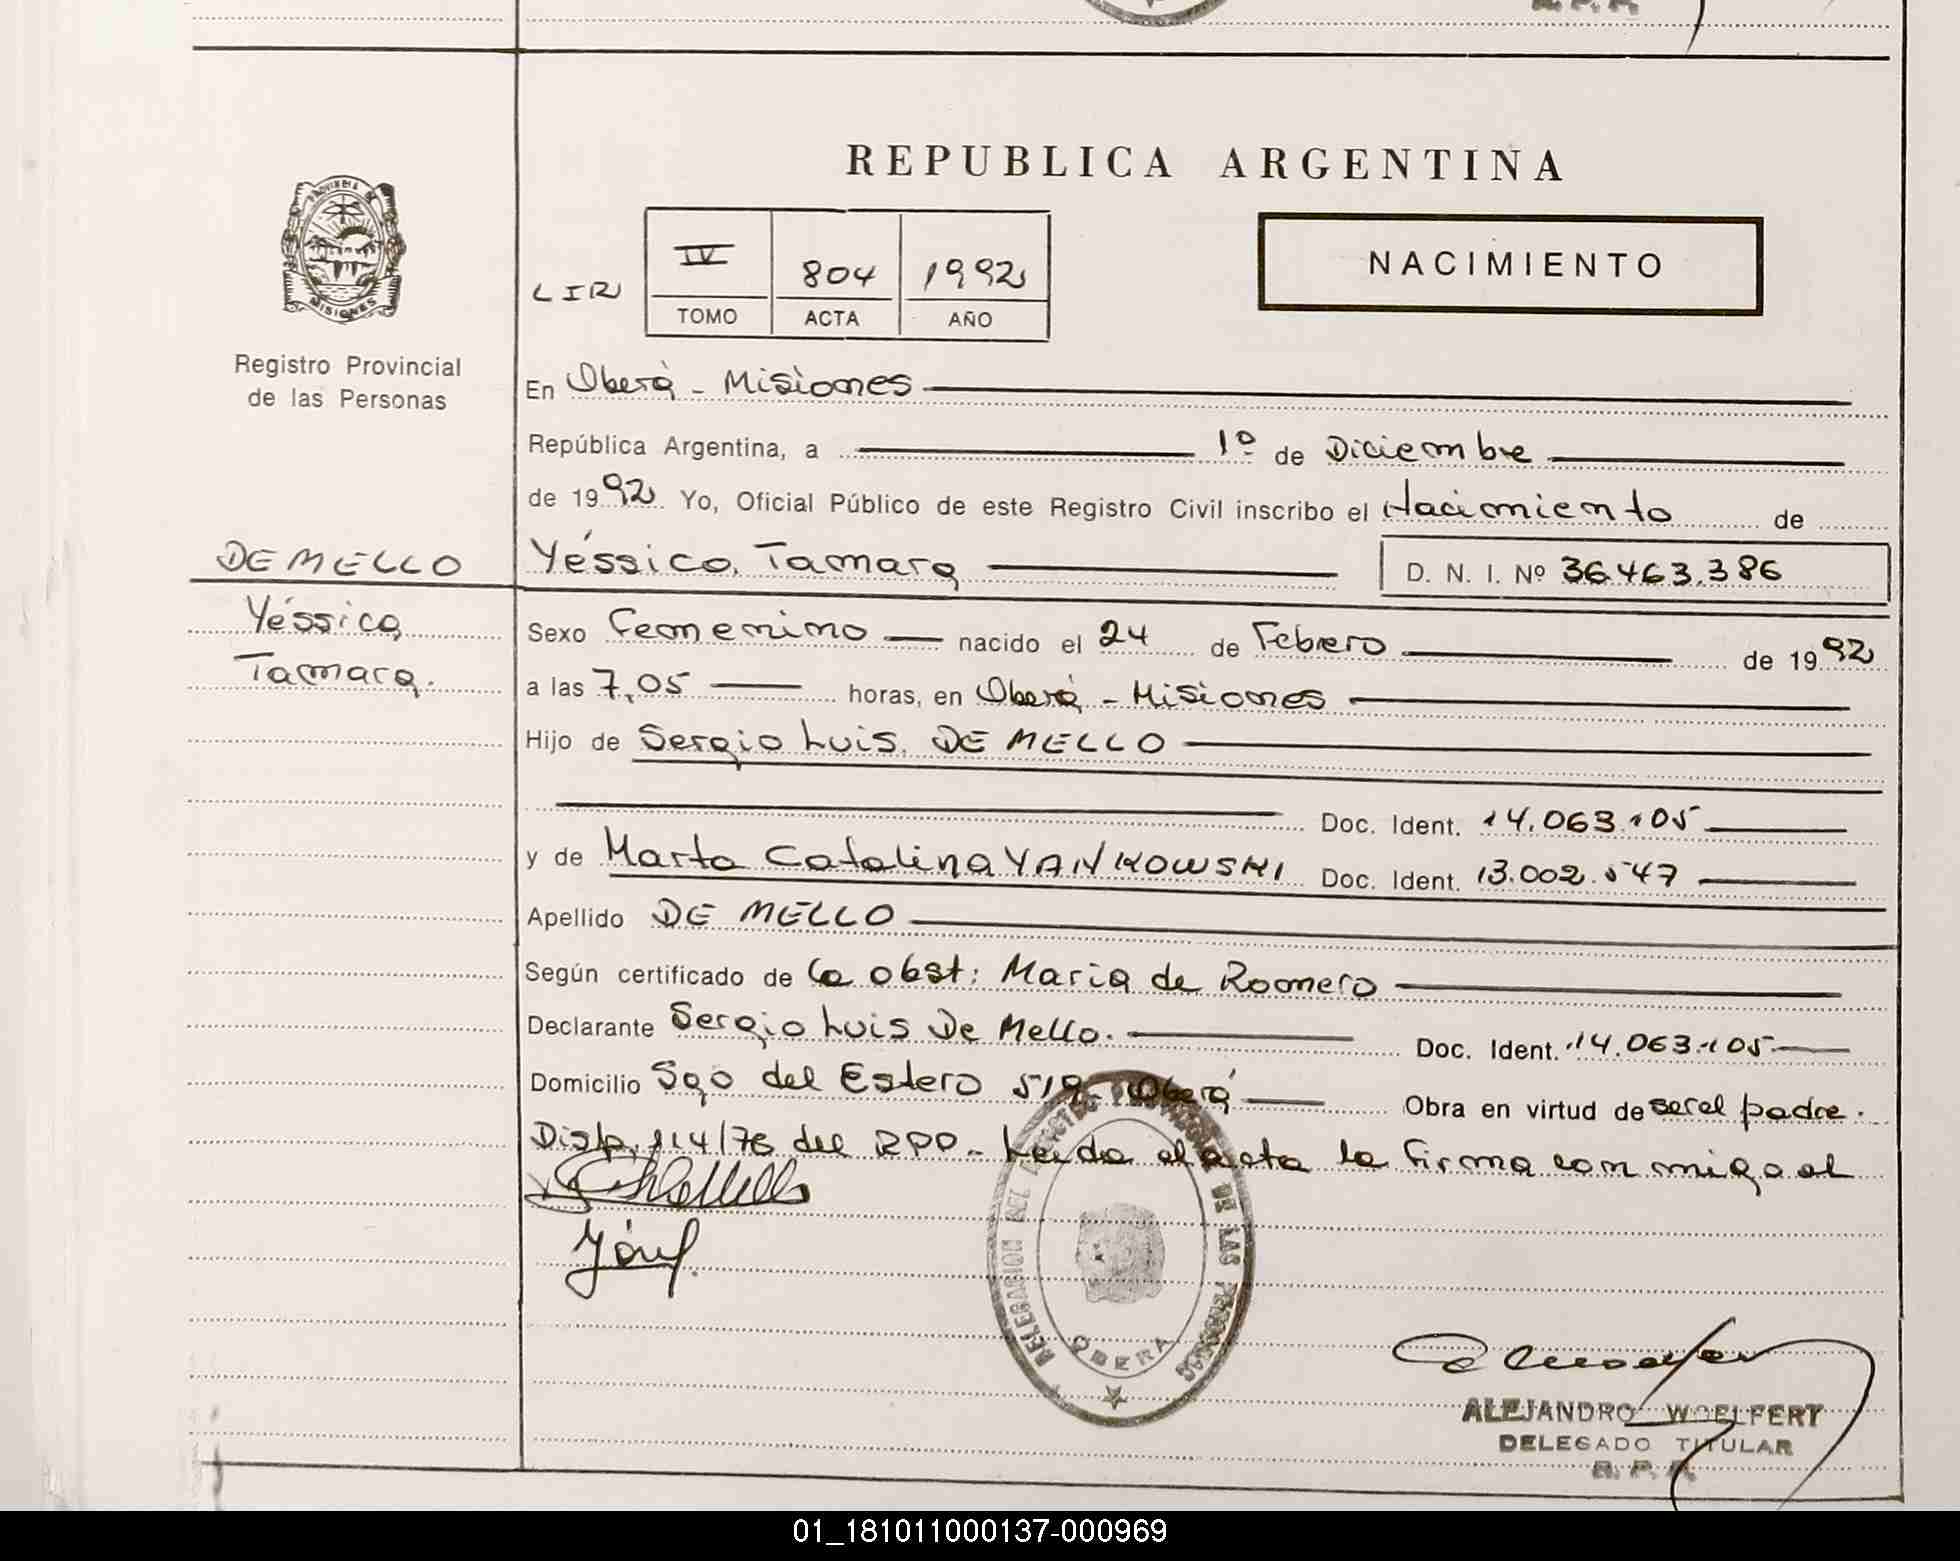 REPUBLICA ARGENTINA
PROVINCIA DE
MISIONES
Registro Provincial
de las Personas
LIR
IV 804 1992
TOMO ACTA AÑO
NACIMIENTO
En Oberá - Misiones
República Argentina, a 1º de Diciembre
de 1992 Yo, Oficial Público de este Registro Civil inscribo el Nacimiento de
DE MELLO
Yéssica Tamara
Yéssica, Tamara D. N. I. Nº 36.463.386
Sexo Femenino nacido el 24 de Febrero de 1992
a las 7,05 horas, en Oberá - Misiones
Hijo de Sergio Luis DE MELLO
Doc. Ident. 14.063.105
y de Marta Catalina YANKOWSKI Doc. Ident. 13.002.547
Apellido DE MELLO
Según certificado de la obst: Maria de Romero
Declarante Sergio Luis De Mello. Doc. Ident. 14.063.105
Domicilio Sgo del Estero 519 - Oberá Obra en virtud de ser el padre.
Disp. 114/76 del RPP - Leida el acta la firma conmigo el
DELEGACION DEL REGISTRO PROVINCIAL DE LAS PERSONAS
OBERA
ALEJANDRO WOELFERT
DELEGADO TITULAR
R. P. P.
01_181011000137-000969